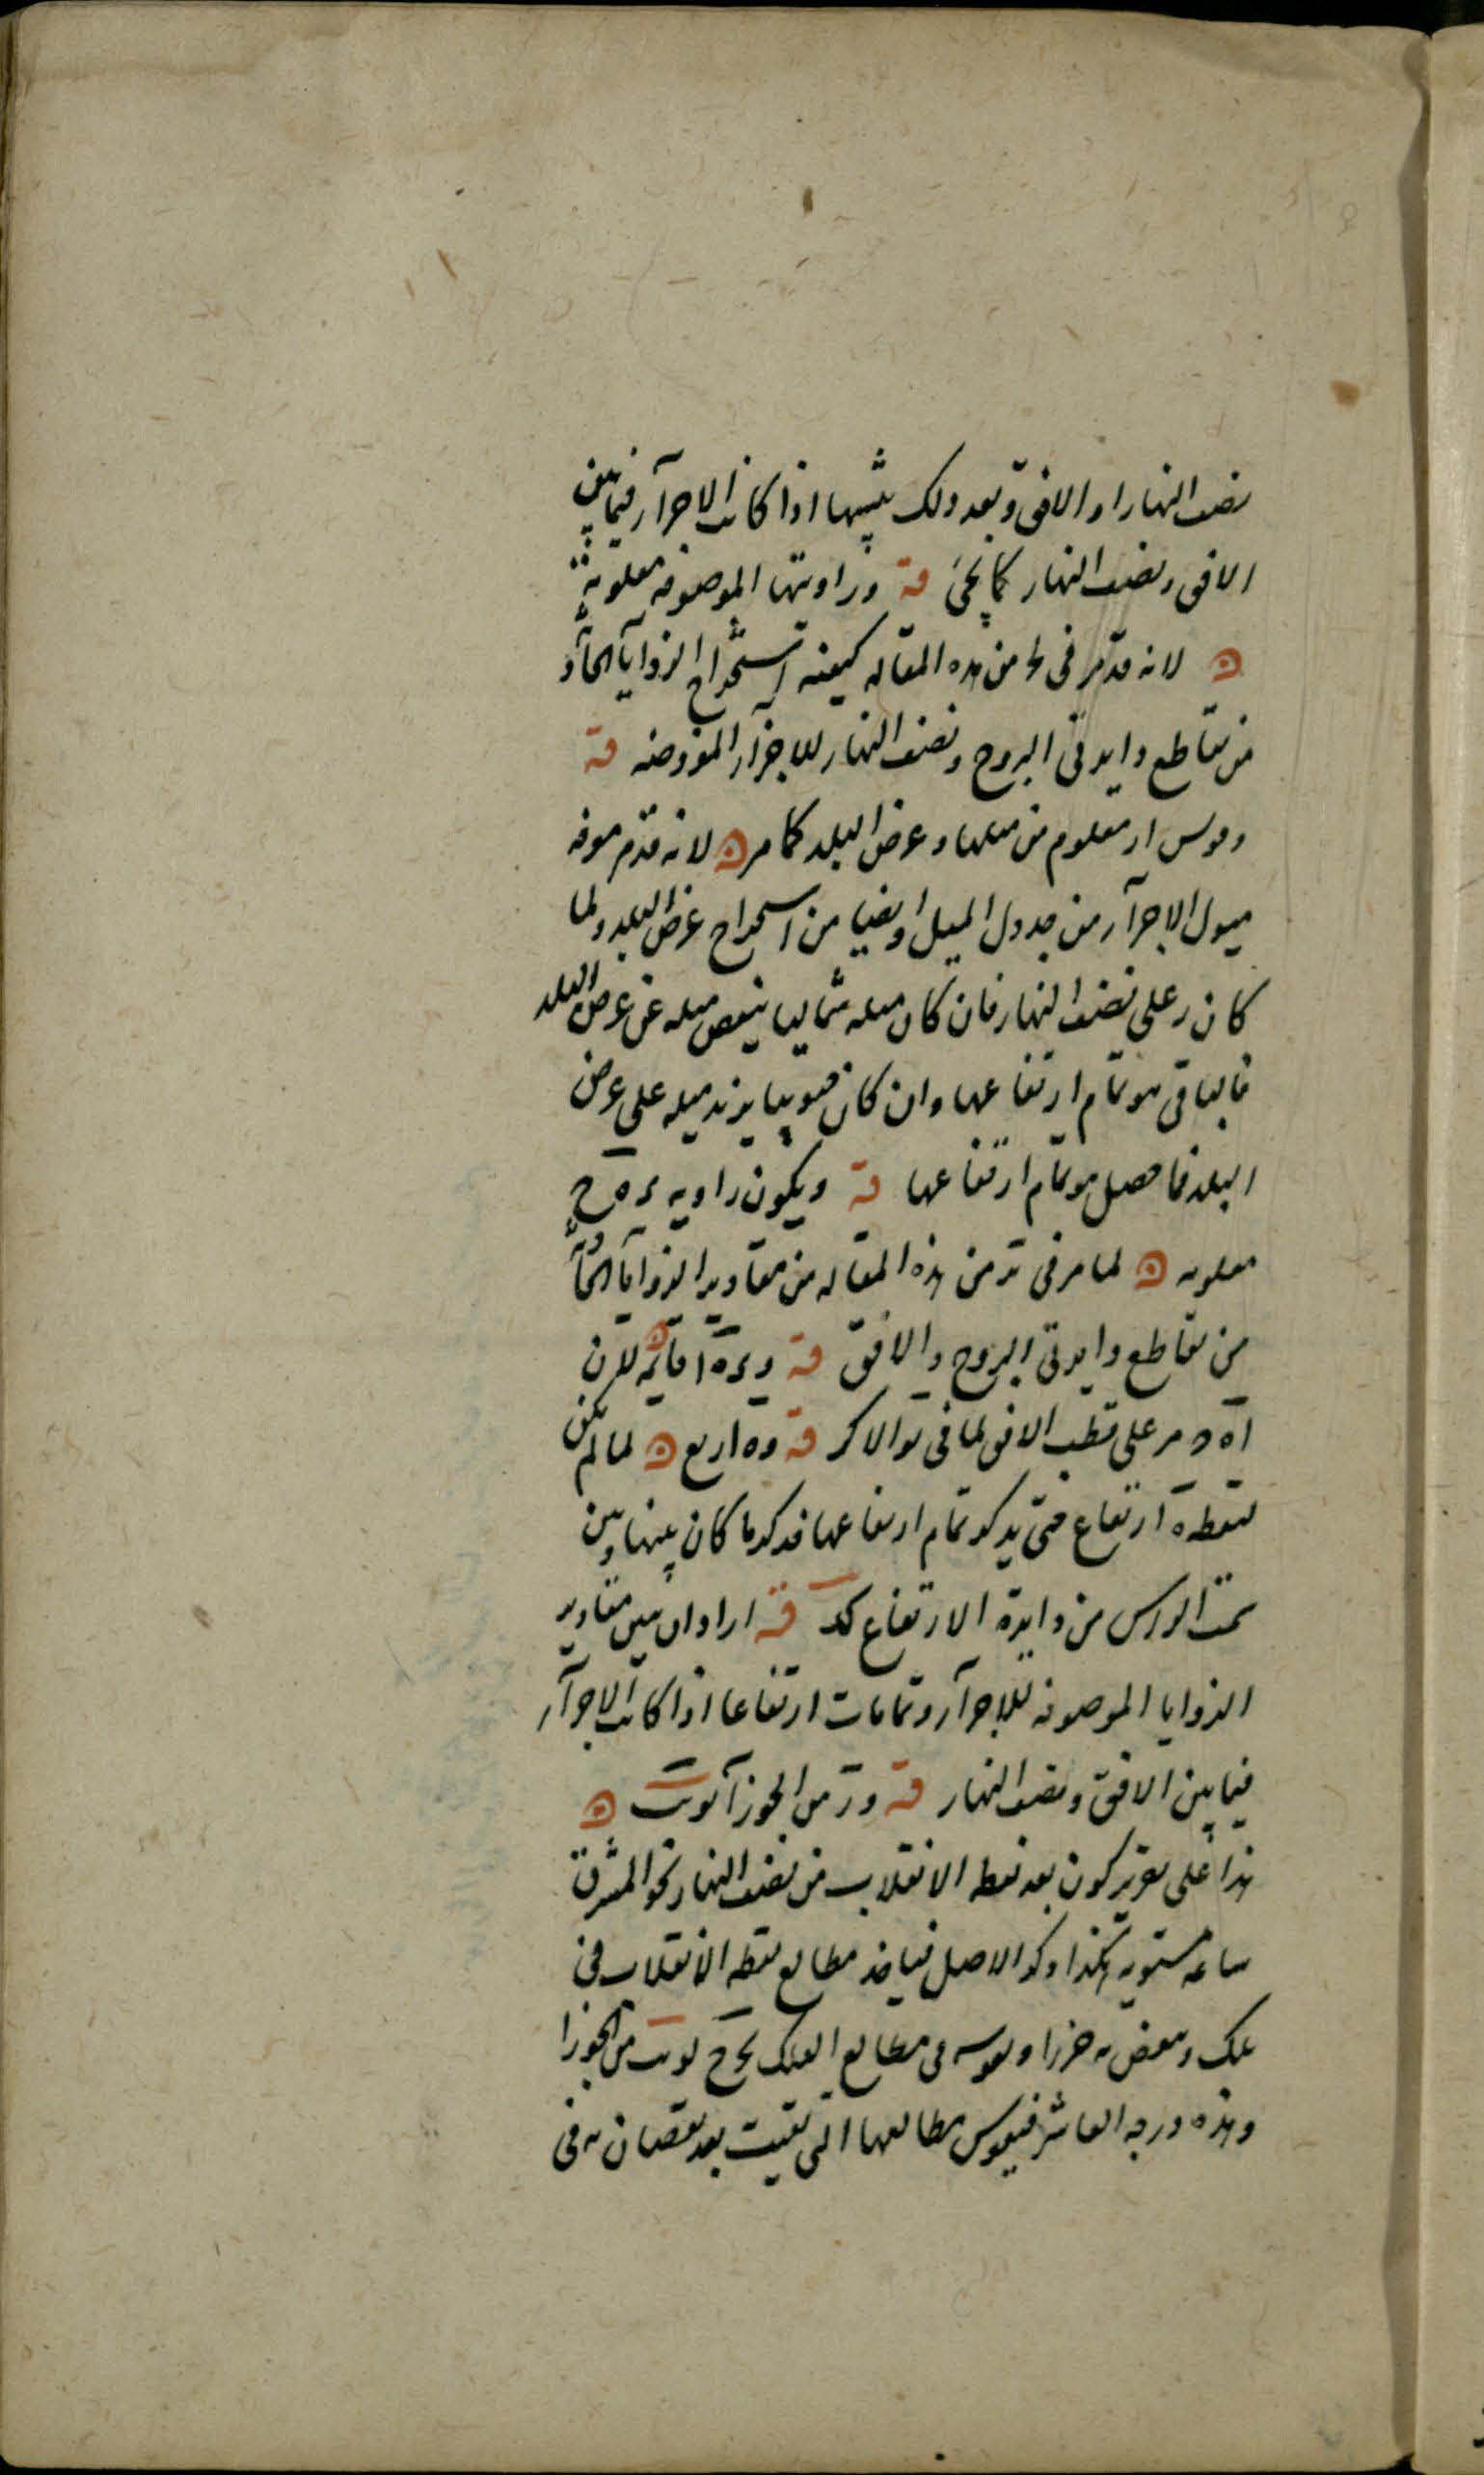 نصف النهار او الافق وبعد ذلك يبينها اذا كانت الاجزآء فيما بين
الافق ونصف النهار كما يجئ قة وزاويتها الموصوفة معلومة
لانه قد مر فى ط من هذه المقاله كيفية استخراج الزوايا الحادثة
من تقاطع دايرتى البروج ونصف النهار للاجزآء المفروضه قة
وقوس ار معلوم من ميلها وعرض البلد كما مر لانه قد مر معرفة
ميول الاجزآء من جدول الميل وايضا من استخراج عرض البلد ولما
كان ر على نصف النهار فان كان ميله شماليا ينقص ميله عن عرض البلد
فالباقى هو تمام ارتفاعها وان كان جنوبيا يزيد ميله على عرض
البلد فما حصل هو تمام ارتفاعها قة ويكون زاوية ء ه ح
معلومه لما مر فى من هذه المقاله من مقادير الزوايا الحادثة
من تقاطع دايرتى البروج والافق قة وء ه ا قايمة لان
ا ه مر على قطب الافق لما فى الاكر قة وه ا ربع لما لم يكن
لنقطة ه ارتفاع حتى يذكر تمام ارتفاعها فذكر ما كان بينها وبين
سمت الراس من دايرة الارتفاع قة اراد ان يبين مقادير
الزوايا الموصوفه للاجزآء وتمامات ارتفاعها اذا كانت الاجزآء
فيما بين الافق ونصف النهار قة ور من الجوزآ
هذا على تقدير كون بعد نقطه الانقلاب من نصف النهار نحو المشرق
ساعه مستويه هكذا ذكر الاصل فياخذ مطالع نقطه الانقلاب فى
الفلك وينقص يه جزءا ويقوسه فى مطالع الفلك يخرج من الجوزا
وهذه درجه العاشر فيقوس مطالعها التى بقيت بعد نقصان يه فى